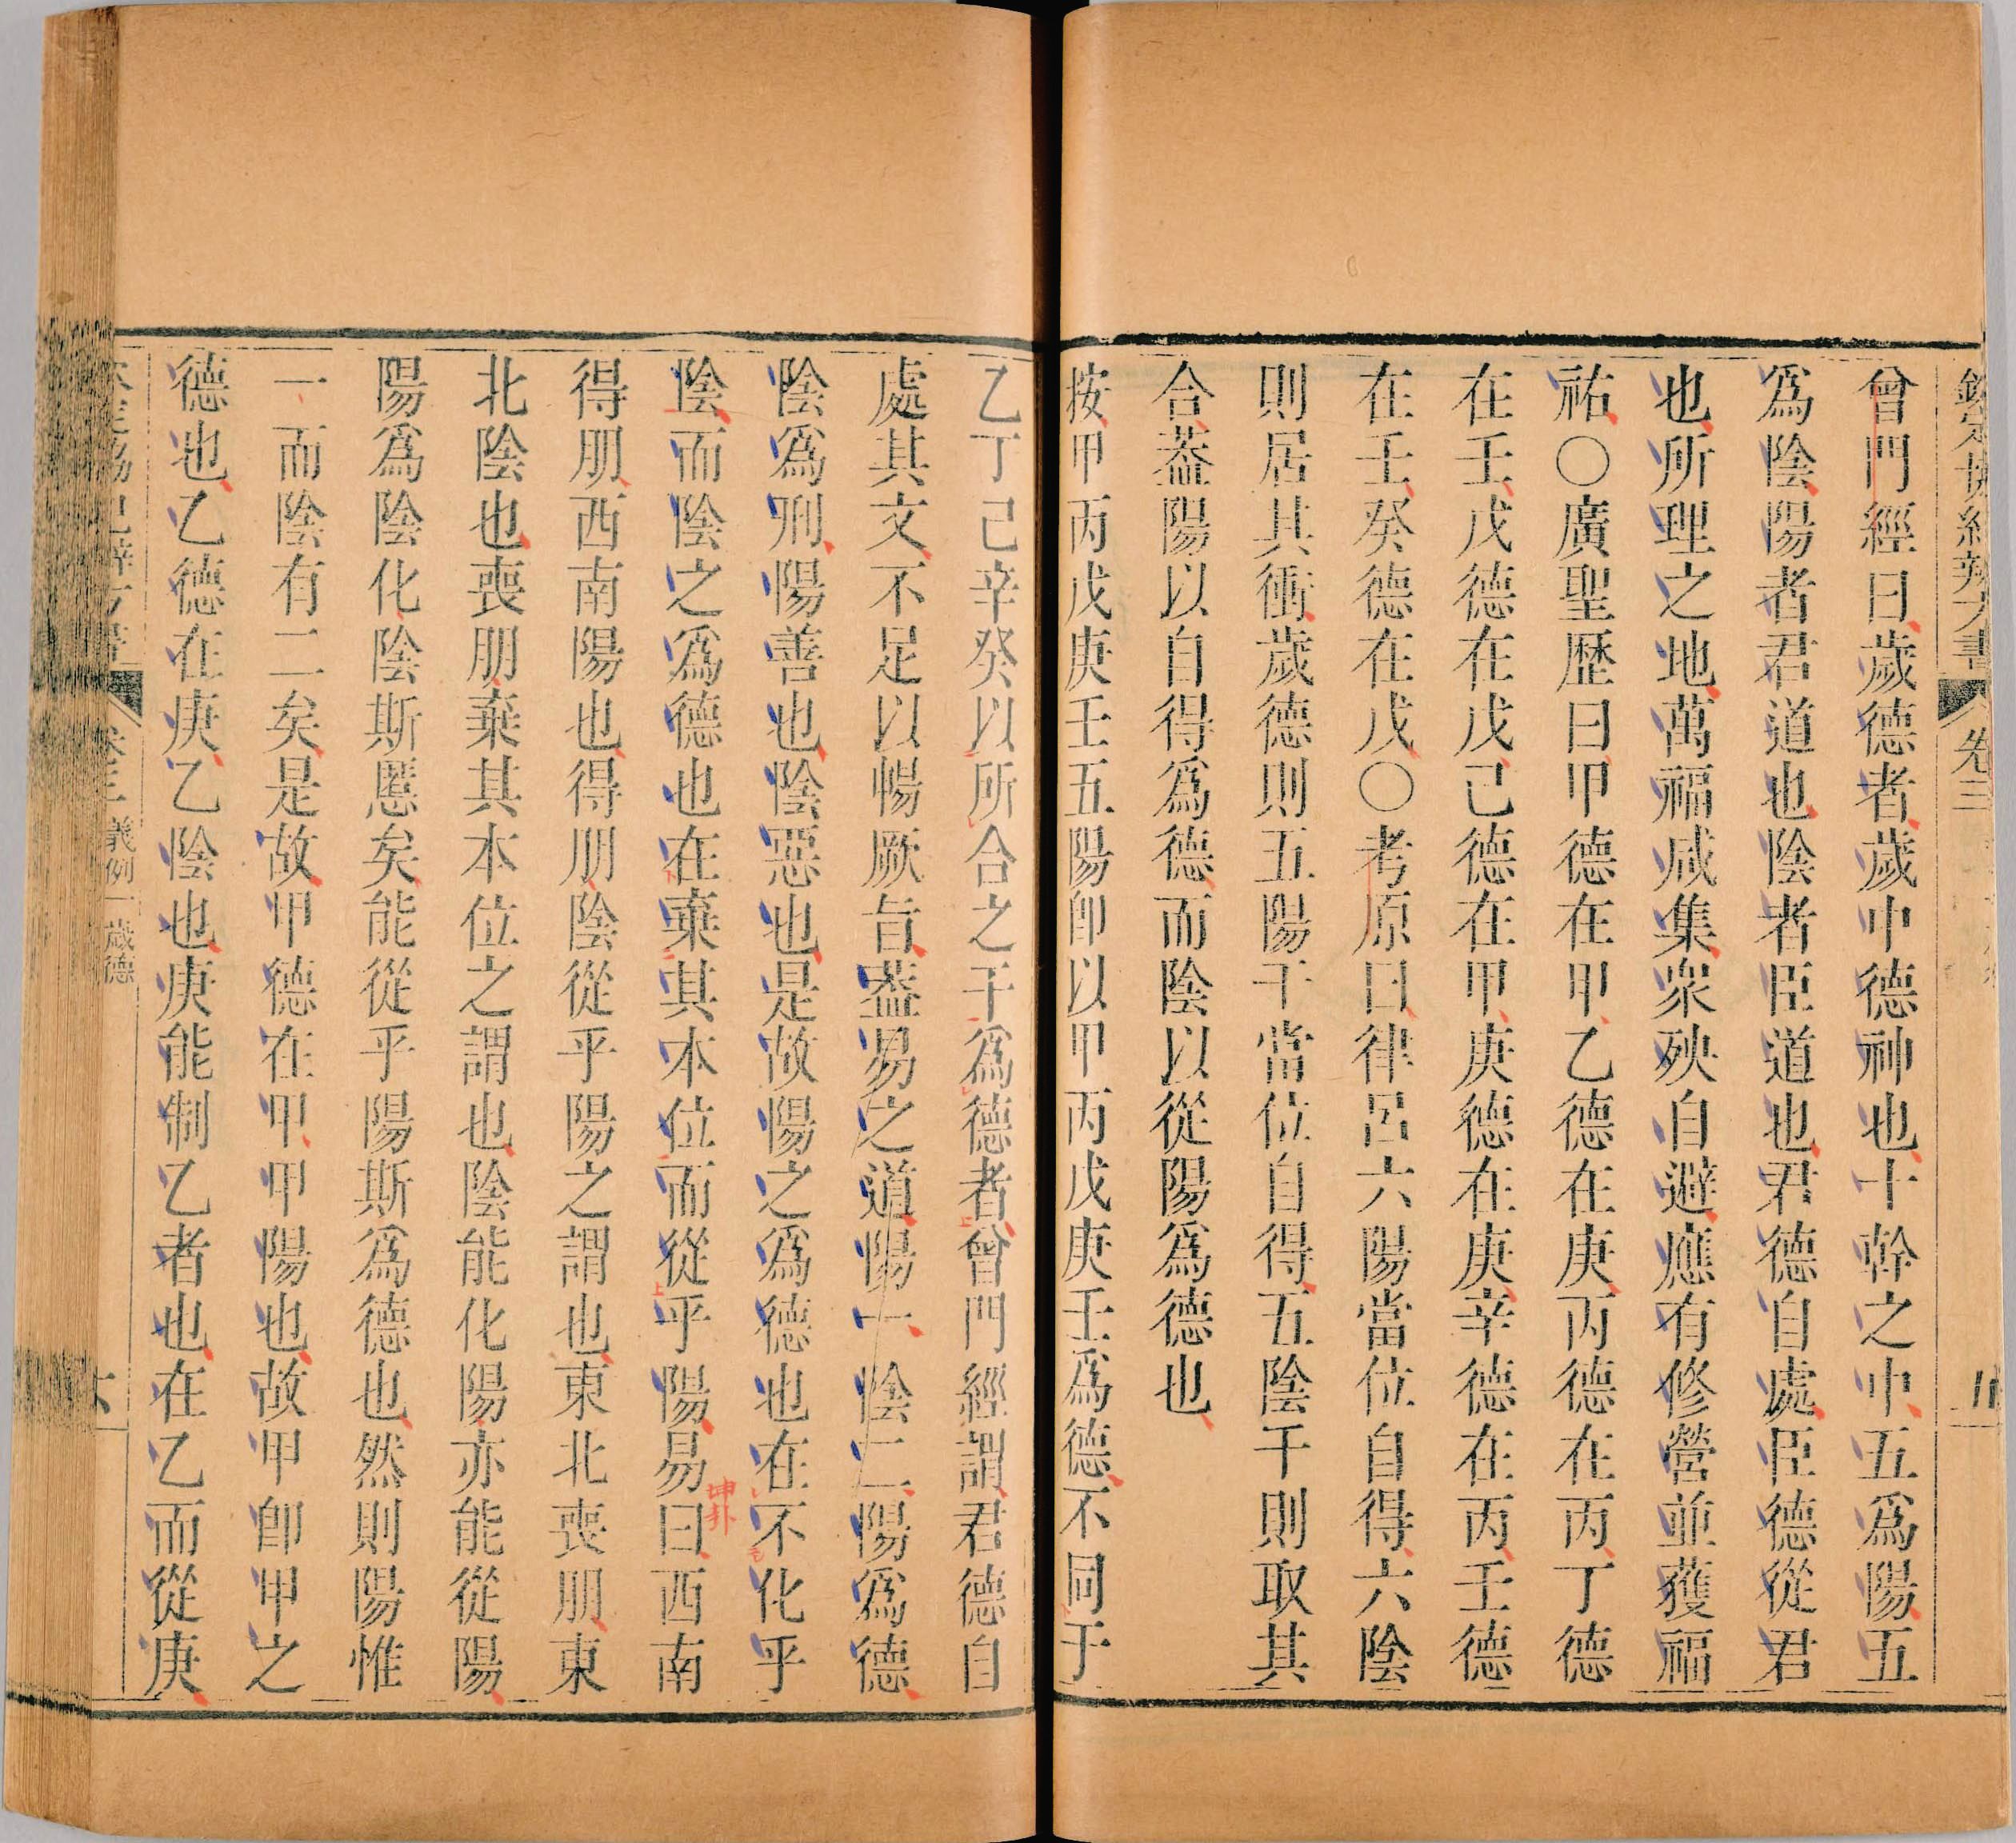 欽定協紀辨方書 卷三
曾門經曰歲德者歲中德神也十幹之中五爲陽五
爲陰陽者君道也陰者臣道也君德自處臣德從君
也所理之地萬福咸集衆殃自避應有修營並獲福
祐○廣聖歷曰甲德在甲乙德在庚丙德在丙丁德
在壬戊德在戊己德在甲庚德在庚辛德在丙壬德
在壬癸德在戊○考原曰律呂六陽當位自得六陰
則居其衝歲德則五陽干當位自得五陰干則取其
合葢陽以自得爲德而陰以從陽爲德也
按甲丙戊庚壬五陽卽以甲丙戊庚壬爲德不同于
乙丁己辛癸以所合之干爲德者曾門經謂君德自
處其文不足以暢厥旨葢易之道陽一陰二陽爲德
陰爲刑陽善也陰惡也是故陽之爲德也在不化乎
陰而陰之爲德也在棄其本位而從乎陽易曰西南
坤卦
得朋西南陽也得朋陰從乎陽之謂也東北喪朋東
北陰也喪朋棄其本位之謂也陰能化陽亦能從陽
陽爲陰化陰斯慝矣能從乎陽斯爲德也然則陽惟
一而陰有二矣是故甲德在甲甲陽也故甲卽甲之
德也乙德在庚乙陰也庚能制乙者也在乙而從庚
卷三 義例一歲德 六